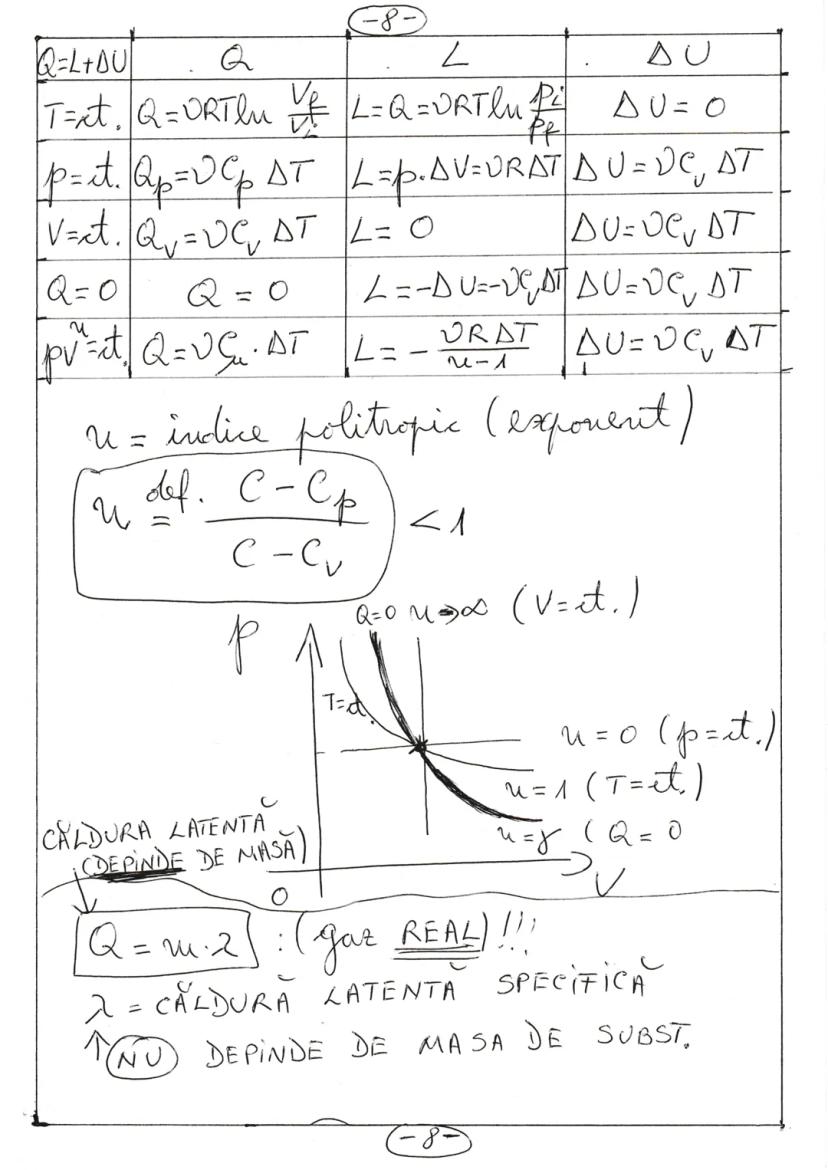 -8-
Q=L+ΔU . Q . L ΔU
T=ct. Q=νRTln Vf/Vi L=Q=νRTln pi/pf ΔU=0
p=ct. Qp=νCp ΔT L=p·ΔV=νRΔT ΔU=νCv ΔT
V=ct. Qv=νCv ΔT L=0 ΔU=νCv ΔT
Q=0 Q=0 L=-ΔU=-νCvΔT ΔU=νCv ΔT
pVⁿ=ct. Q=νCn·ΔT L=-νRΔT/n-1 ΔU=νCv ΔT
n = indice politropic (exponent)
n def.= C-Cp/C-Cv <1
p Q=0 n→∞ (V=ct.)
T=ct.
n=0 (p=ct.)
n=1 (T=ct.)
n=γ (Q=0
CĂLDURA LATENTĂ
(DEPINDE DE MASĂ)
O V
Q=m·λ :(gaz REAL)!!!
λ = CĂLDURĂ LATENTĂ SPECIFICĂ
↑ NU DEPINDE DE MASA DE SUBST.
-8-